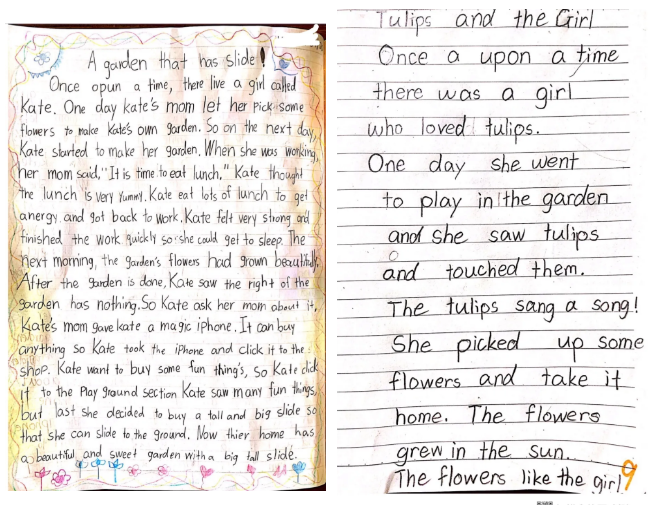 A garden that has slide!
Once opun a time, there live a girl called
Kate. One day kate's mom let her pick some
flowers to make Kate's own garden. So on the next day,
Kate started to make her garden. When she was working,
her mom said, "It is time to eat lunch," Kate thought
the lunch is very Yummy. Kate eat lots of lunch to get
anergy and got back to work. Kate felt very strong and
finished the work quickly so she could get to sleep. The
next morning, the garden's flowers had grown beautifully.
After the garden is done, Kate saw the right of the
garden has nothing. So Kate ask her mom about it,
Kate's mom gave kate a magic iphone. It can buy
anything so Kate took the iPhone and click it to the
shop. Kate want to buy some fun thing's, So Kate click
it to the Play ground section Kate saw many fun things,
but last she decided to buy a tall and big slide so
that she can slide to the ground. Now thier home has
a beautiful and sweet garden with a big tall slide.
Tulips and the Girl
Once a upon a time
there was a girl
who loved tulips.
One day she went
to play in the garden
and she saw tulips
and touched them.
The tulips sang a song!
She picked up some
flowers and take it
home. The flowers
grew in the sun.
The flowers like the girl
9